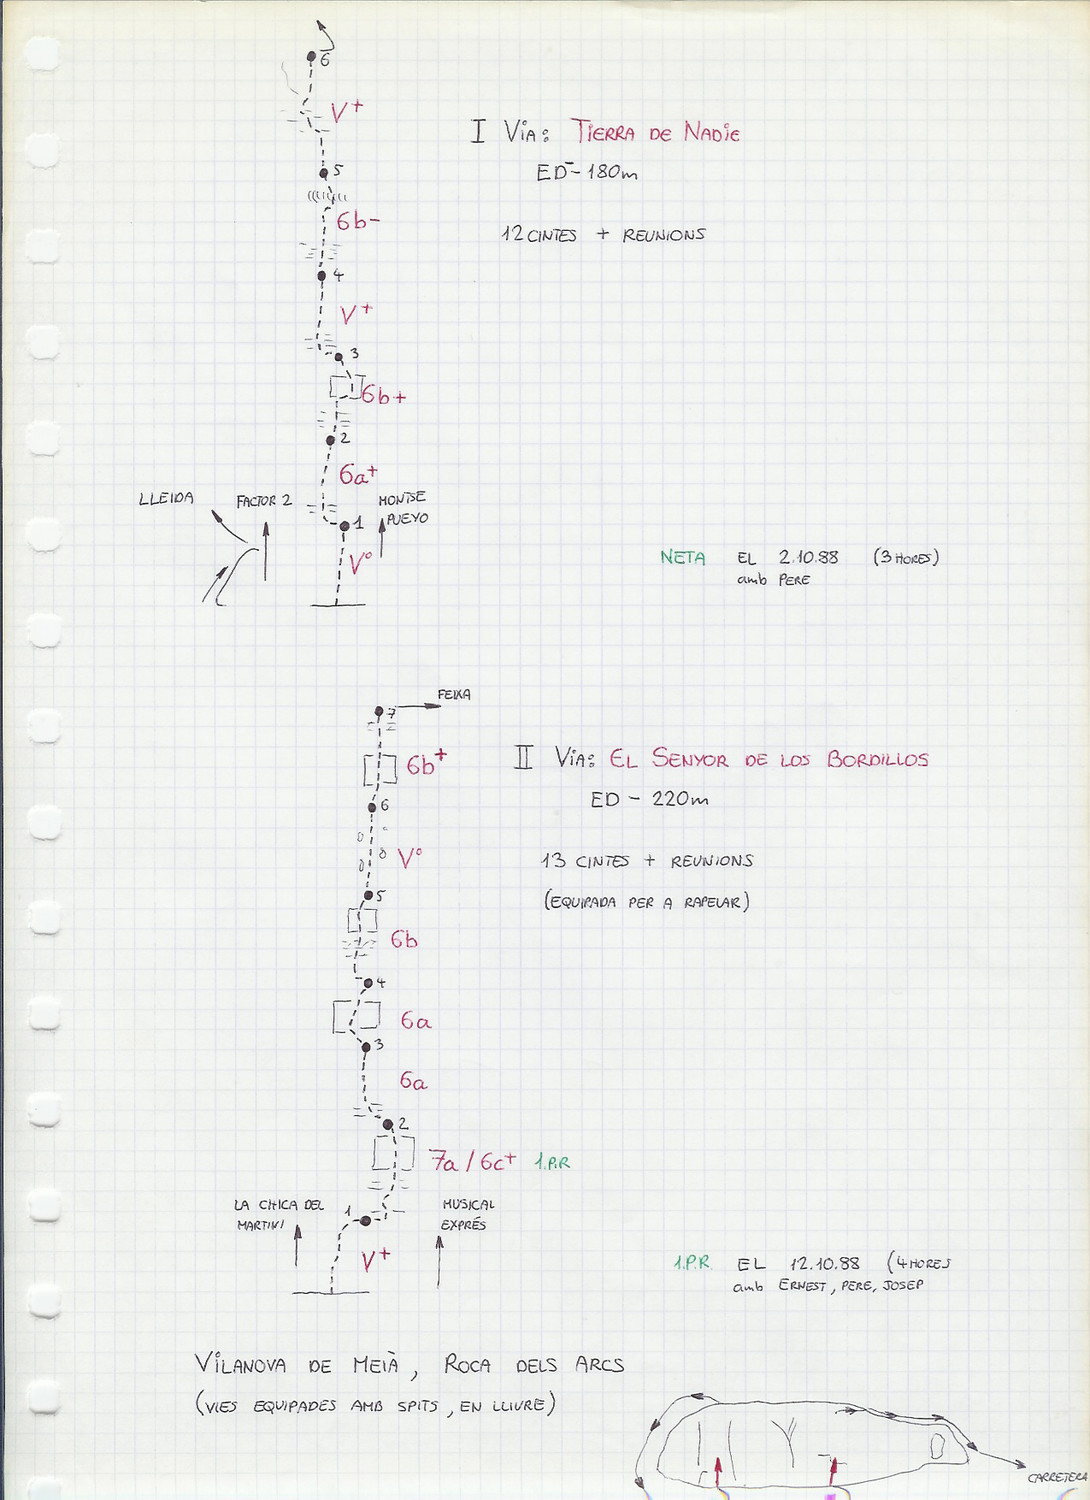 6
V+
I VIA: TIERRA DE NADIE
ED- - 180m
5
6b-
12 CINTES + REUNIONS
4
V+
3
6b+
2
6a+
LLEIDA
FACTOR 2
MONTSE
PUEYO
1
Vº
NETA EL 2.10.88 (3 HORES)
amb PERE
7
FEIXA
6b+
II VIA: EL SENYOR DE LOS BORDILLOS
ED - 220m
6
Vº
13 CINTES + REUNIONS
(EQUIPADA PER A RAPELAR)
5
6b
4
6a
3
6a
2
7a / 6c+ 1.P.R
LA CHICA DEL
MARTINI
1
MUSICAL
EXPRÉS
V+
1.P.R. EL 12.10.88 (4 HORES
amb ERNEST, PERE, JOSEP
VILANOVA DE MEIÀ, ROCA DELS ARCS
(VIES EQUIPADES AMB SPITS, EN LLIURE)
CARRETERA